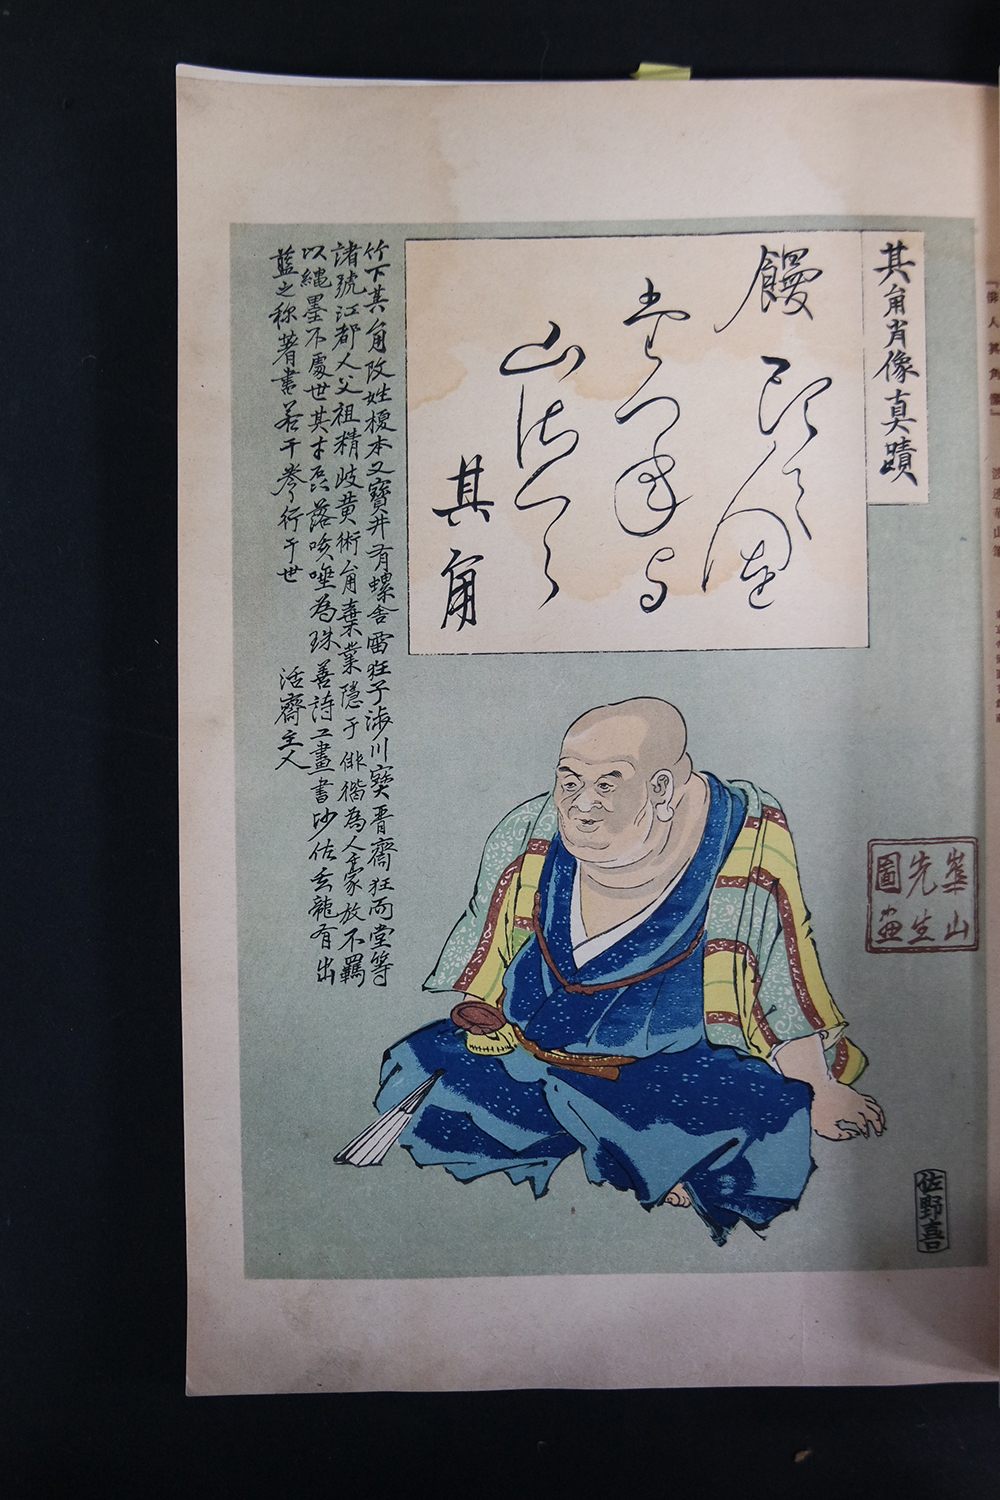 其角肖像真蹟
饅頭て人を
たつねよ
山さくら
其角
竹下其角改姓榎本又寶井有螺舎雷狂子渉川寶晋齋狂而堂等
諸號江都人父祖精岐黄術角棄業隱于俳諧為人豪放不羈
以繩墨不處世其才磊落咳唾為珠善詩工畫書 佐玄龍有出
藍之称著書若干巻行于世
活齋主人
崋山
先生
圖画
佐野喜